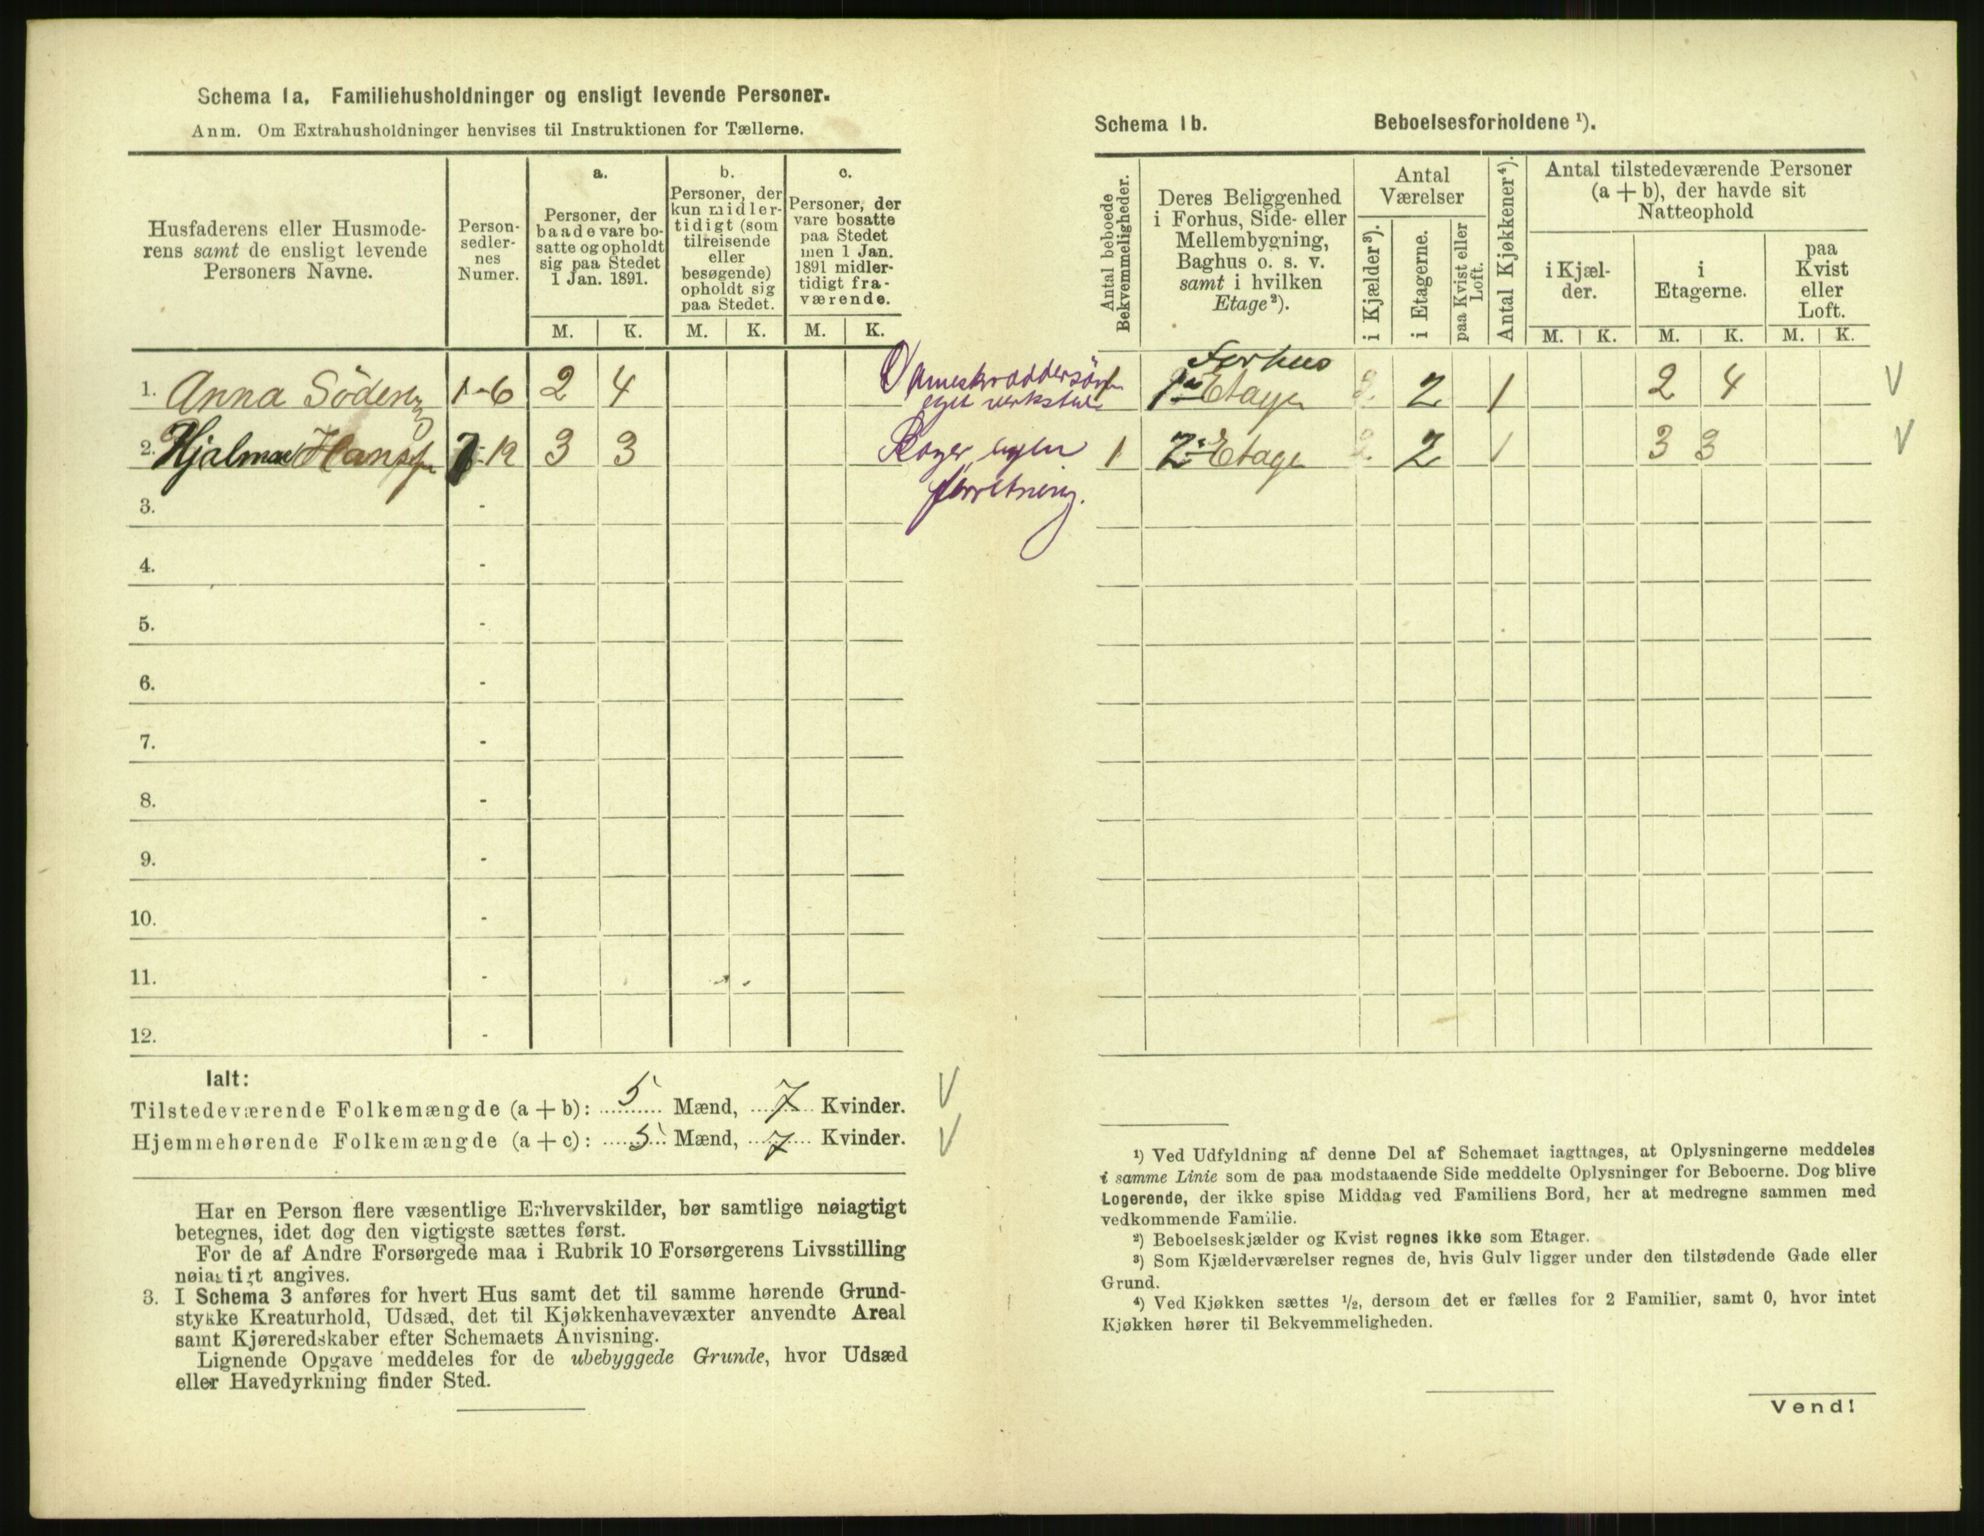 Schema 1a. Familiehusholdninger og ensligt levende Personer.
Anm. Om Extrahusholdninger henvises til Instruktionen for Tællerne.
Husfaderens eller Husmoderens samt de ensligt levende Personers Navne.
Personsedlernes Numer.
a. Personer, der baade vare bosatte og opholdt sig paa Stedet 1 Jan. 1891.
b. Personer, der kun midlertidigt (som tilreisende eller besøgende) opholdt sig paa Stedet.
c. Personer, der vare bosatte paa Stedet men 1 Jan. 1891 midlertidigt fraværende.
M. K. M. K. M. K.
1. Anna Söderlg 1-6 2 4
2. Hjalmar Hansen 7-12 3 3
3. -
4. -
5. -
6. -
7. -
8. -
9. -
10. -
11. -
12. -
Ialt:
Tilstedeværende Folkemængde (a + b): 5 Mænd, 7 Kvinder. V
Hjemmehørende Folkemængde (a + c): 5 Mænd, 7 Kvinder. V
Har en Person flere væsentlige Erhvervskilder, bør samtlige nøiagtigt
betegnes, idet dog den vigtigste sættes først.
For de af Andre Forsørgede maa i Rubrik 10 Forsørgerens Livsstilling
nøiagtigt angives.
3. I Schema 3 anføres for hvert Hus samt det til samme hørende Grund-
stykke Kreaturhold, Udsæd, det til Kjøkkenhavevæxter anvendte Areal
samt Kjøreredskaber efter Schemaets Anvisning.
Lignende Opgave meddeles for de ubebyggede Grunde, hvor Udsæd
eller Havedyrkning finder Sted.
Schema 1b. Beboelsesforholdene ¹).
Antal beboede Bekvemmeligheder.
Deres Beliggenhed i Forhus, Side- eller Mellembygning, Baghus o. s. v. samt i hvilken Etage ²).
Antal Værelser
i Kjælder ³).
i Etagerne.
paa Kvist eller Loft.
Antal Kjøkkener ⁴).
Antal tilstedeværende Personer (a + b), der havde sit Natteophold
i Kjælder.
i Etagerne.
paa Kvist eller Loft.
M. K. M. K. M. K.
Forhus
1 1ste Etage 2 1 2 4 V
eget verksted
1 2 Etage 2 1 3 3 V
egen
forretning.
¹) Ved Udfyldning af denne Del af Schemaet iagttages, at Oplysningerne meddeles
i samme Linie som de paa modstaaende Side meddelte Oplysninger for Beboerne. Dog blive
Logerende, der ikke spise Middag ved Familiens Bord, her at medregne sammen med
vedkommende Familie.
²) Beboelseskjælder og Kvist regnes ikke som Etager.
³) Som Kjælderværelser regnes de, hvis Gulv ligger under den tilstødende Gade eller
Grund.
⁴) Ved Kjøkken sættes ½, dersom det er fælles for 2 Familier, samt 0, hvor intet
Kjøkken hører til Bekvemmeligheden.
Vend!